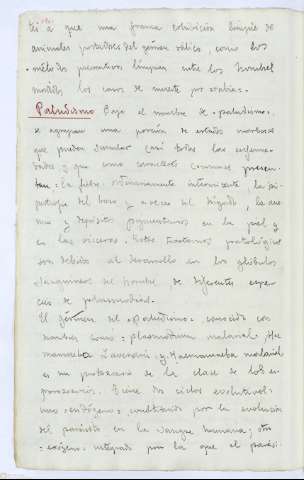 a que una forma limpie de
animales portadores del gérmen rábico, como los
métodos preventivos limpian entre los hombres
los casos de muerte por rabia.
Paludismo Bajo el nombre de "paludismo"
se agrupan una porción de estados morbosos
que pueden simular casi todas las enferme-
dades y que como caracteres comunes presen-
tan: la fiebre ordinariamente intermitente, la hi-
pertrofia del bazo y a veces del hígado, la ane-
mia y depósitos pigmentarios en la piel y
en las vísceras. Estos trastornos patológicos
son debidos al desarrollo en los glóbulos
sanguíneos del hombre de diferentes espe-
cies de plasmodias.
El gérmen del "paludismo" conocido con
nombres como: plasmodium malariae, Hae
mamoeba Laverani y Haemamoeba malariae
es un protozoario de la clase de los es-
porozoarios. Tiene dos ciclos evolutivos:
uno endógeno, por la evolución
del parásito en la sangre humana; otro
exógeno integrado por la que el parási-